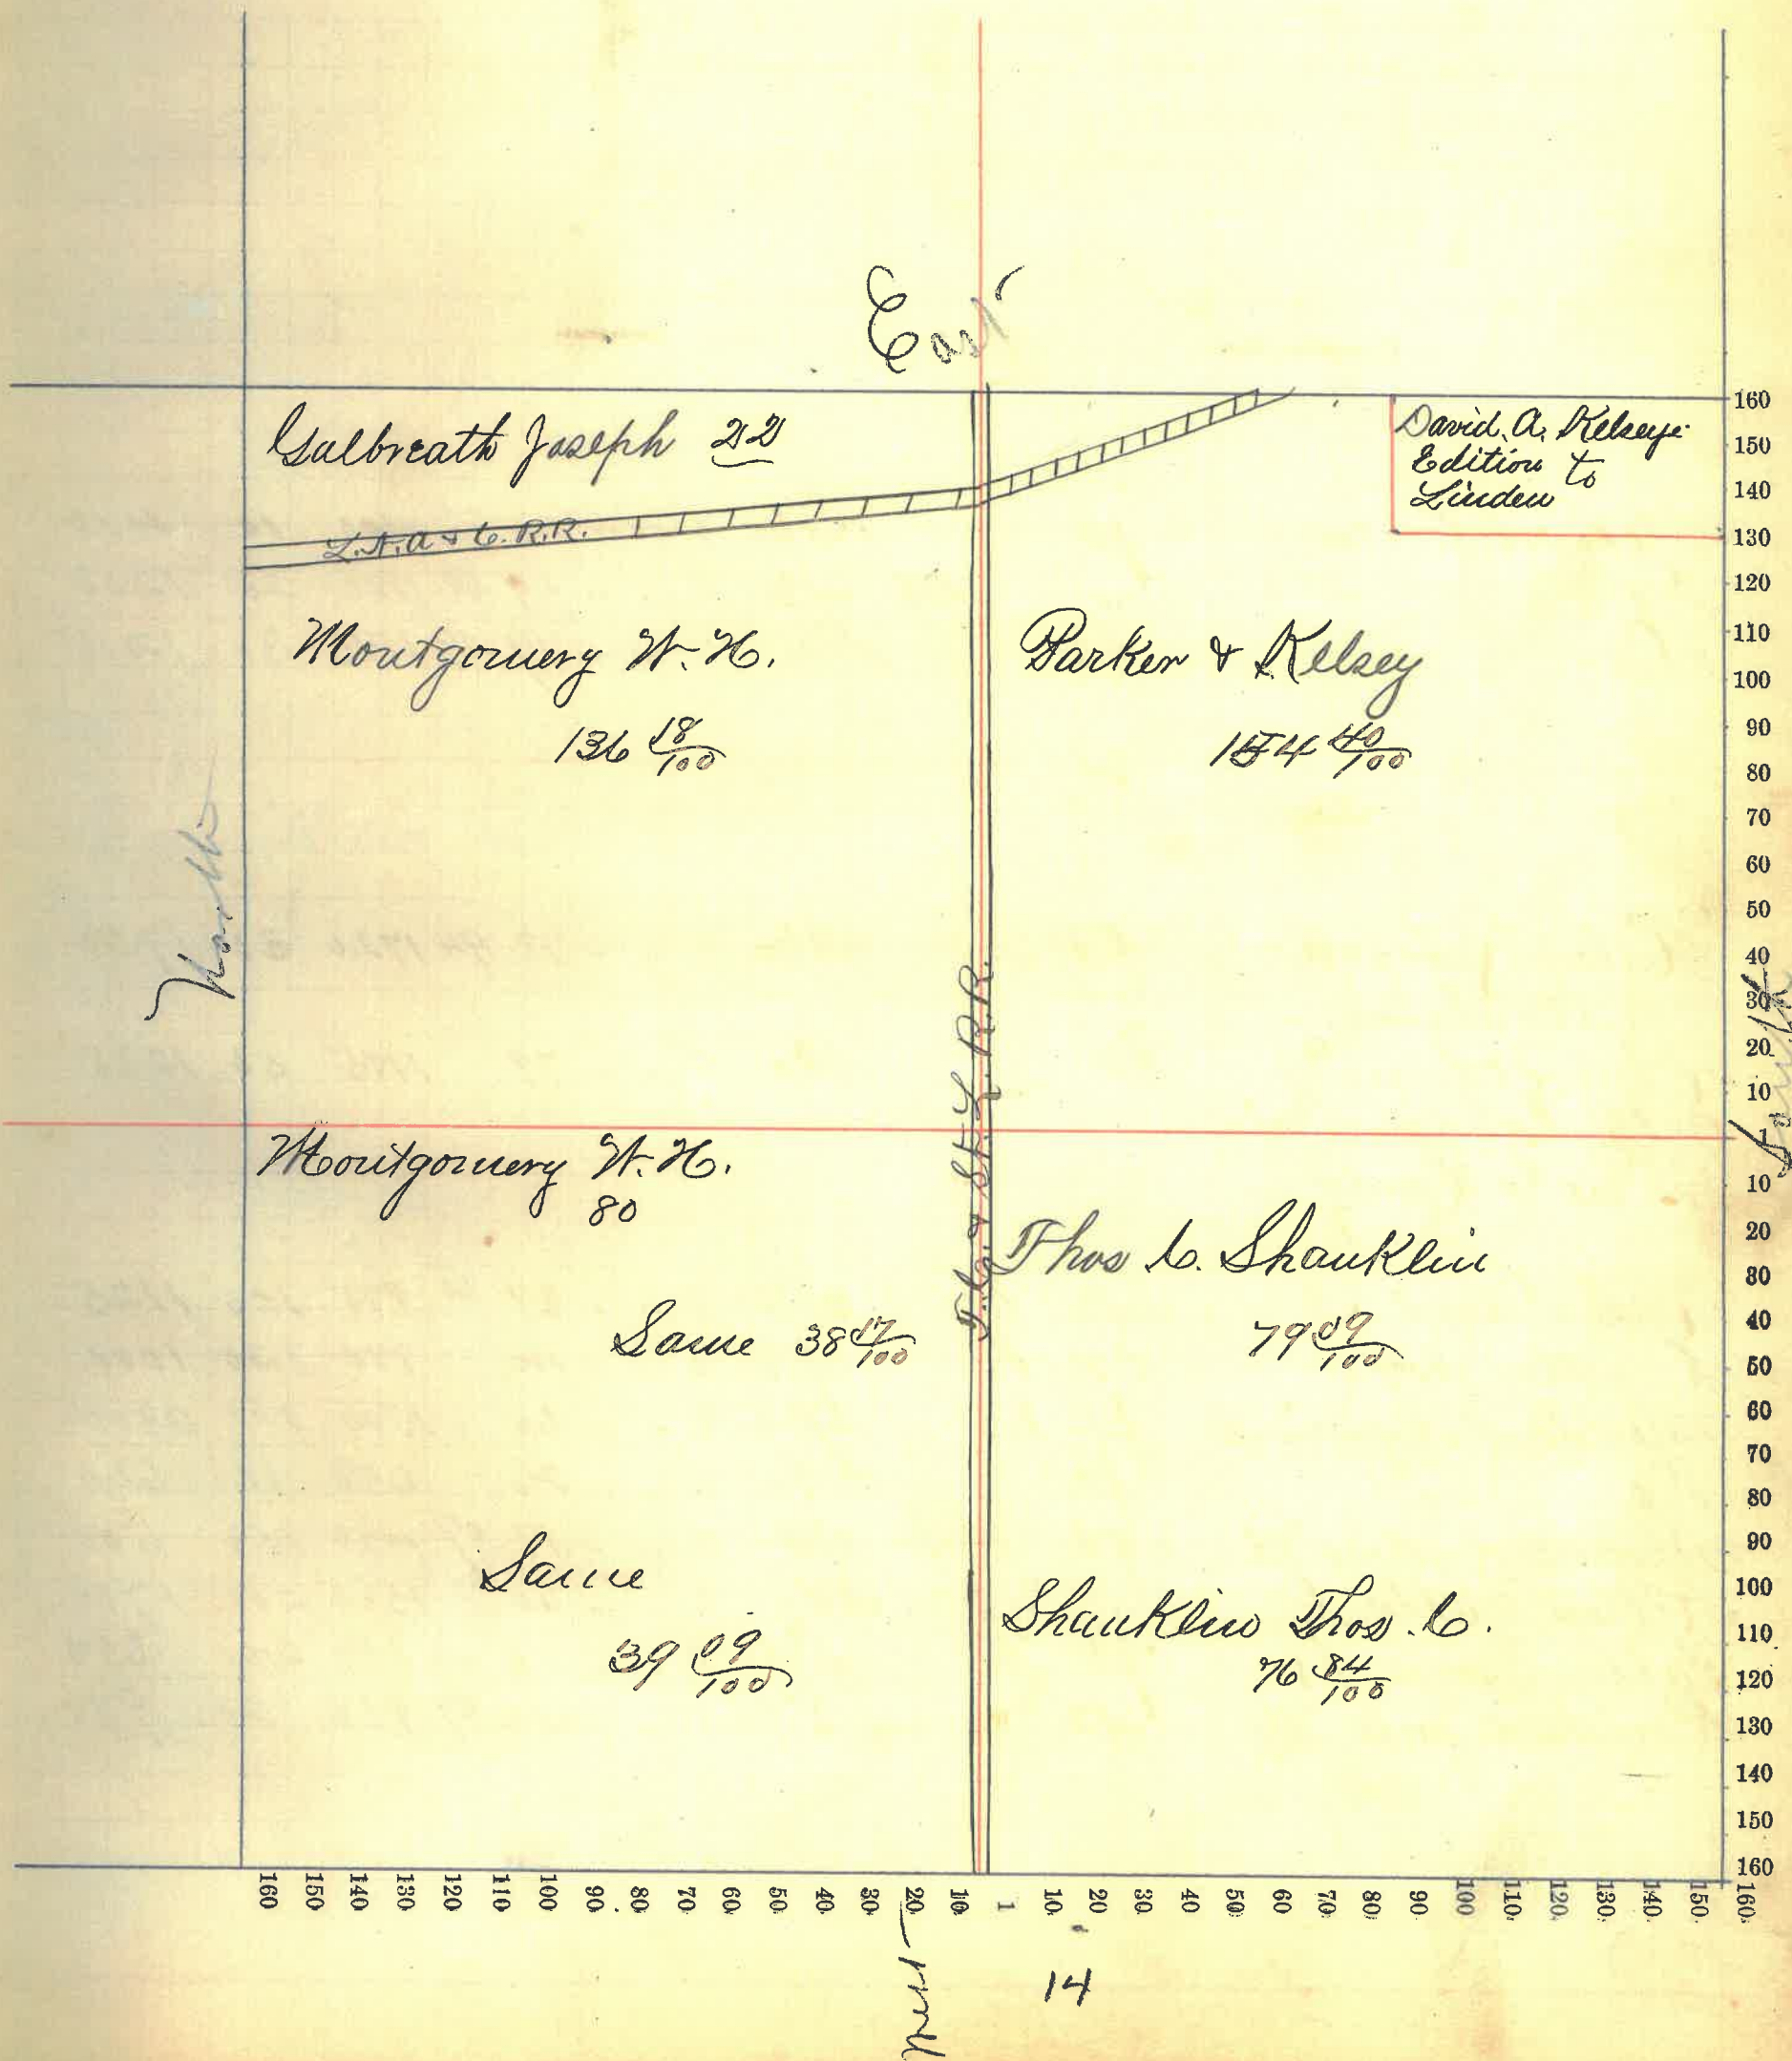 East
Galbreath Joseph 22
L.N.A & C. R.R.
David. A. Kelseys
Edition to
Linden
Montgomery W. H.
136 18/100
Parker & Kelsey
154 40/100
North
South
Montgomery W. H.
80
Same 38 17/100
Thos C. Shanklin
79 09/100
Same
39 09/100
Shanklin Thos. C.
76 84/100
& St. L. R.R.
160
150
140
130
120
110
100
90
80
70
60
50
40
30
20
10
1
10
20
30
40
50
60
70
80
90
100
110
120
130
140
150
160
160 150 140 130 120 110 100 90 80 70 60 50 40 30 20 10 1 10 20 30 40 50 60 70 80 90 100 110 120 130 140 150 160
West
14